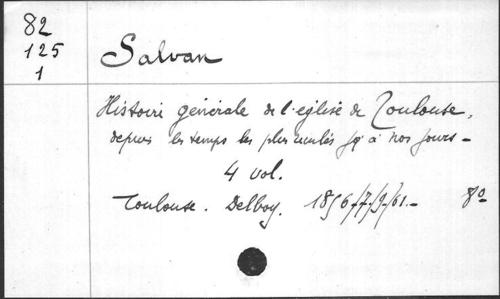 82
125
1
Salvan
Histoire générale de l'eglise de Toulouse,
depuis les temps les plus reculés jq' à nos jours -
4 vol.
Toulouse. Delboy. 1856/7/9/61.- 8º